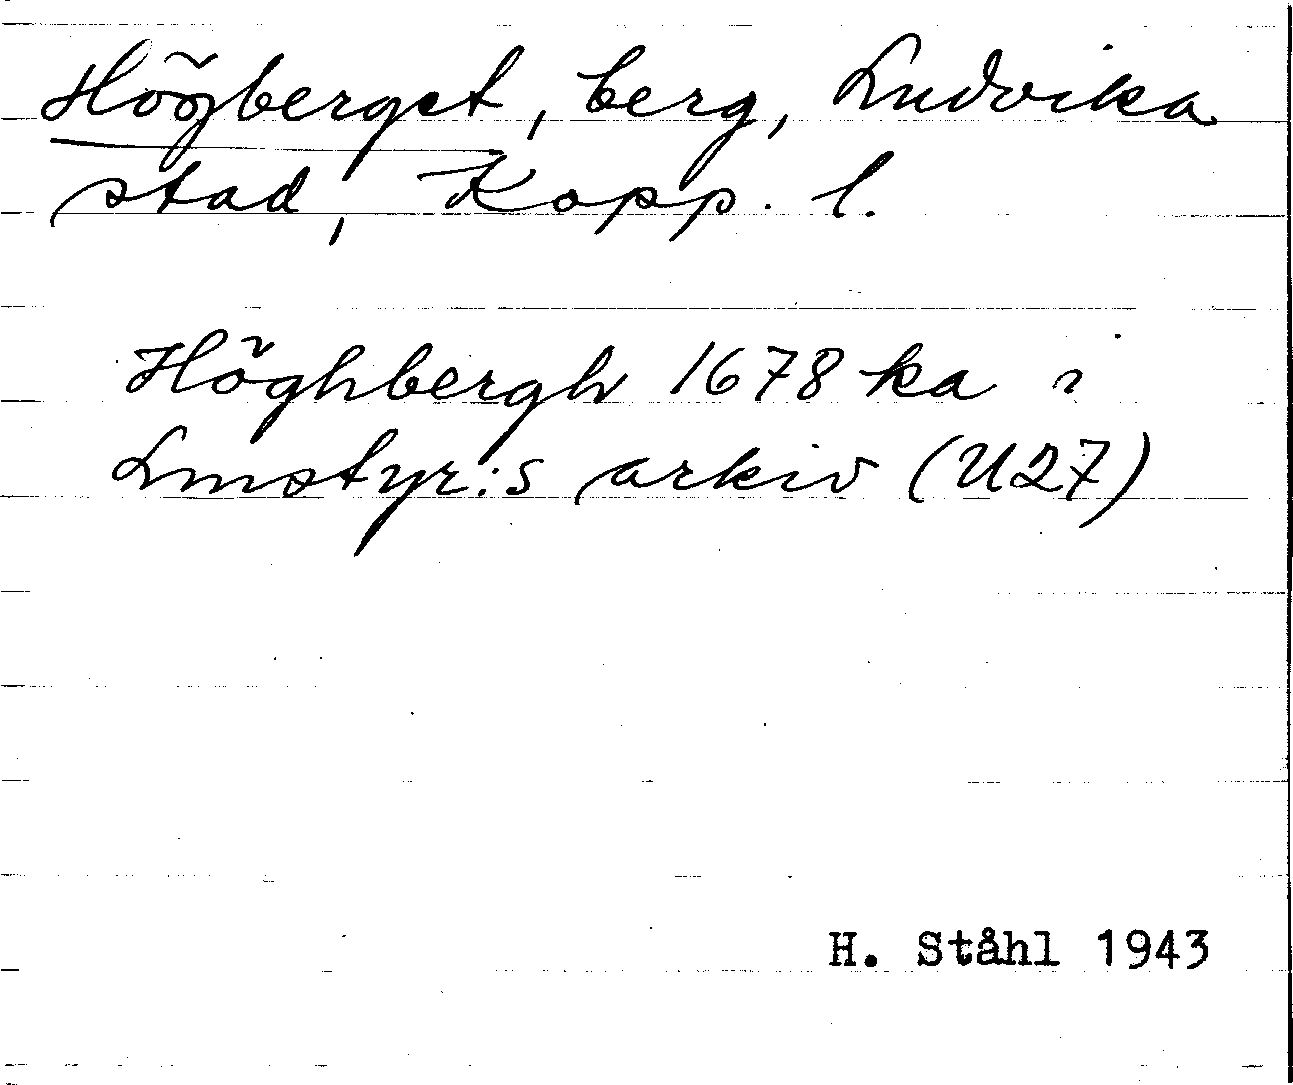 Högberget, berg, Ludvika
stad, Kopp. l.
Höghbergh 1678 ka i
Lmstyr:s arkiv (U27)
H. Ståhl 1943